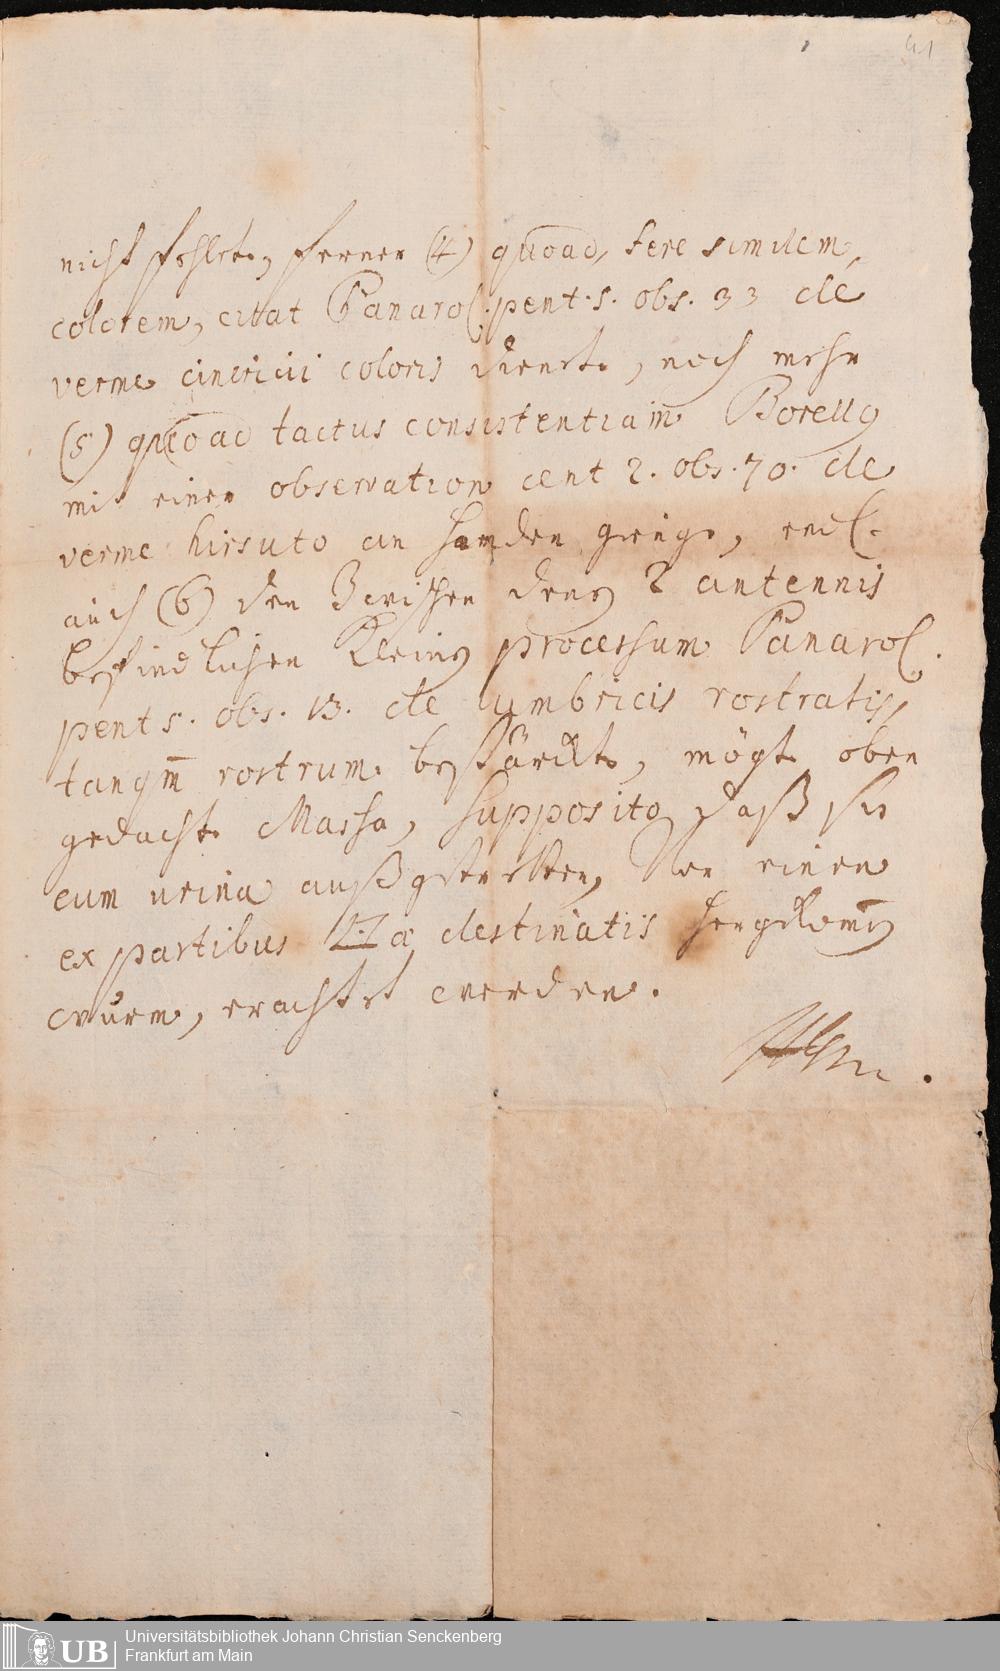 41
nicht fehlete, ferner (4) quoad, fere similem,
colorem, citat Panarol. pent. 5. obs. 33 de
verme cinericii coloris dienete, noch mehr
(5) quoad tactus consistentiam Borellq
mit einer observation cent 2. obs. 70. de
verme hirsuto an Handen gienge, endl.
auch (6) den Zwischen denen 2 antennis
befindlichen Kleinen processum Panarol.
pent 5. obs. 13. de lumbricis rostratis,
tanqm̄ rostrum bestärckte, mögte oben
gedachte Massa, supposito daß sie
cum urina außgetretten, Vor einen
ex partibus destinatis hergekom̄en
wurm, erachtet werden.
UB
Universitätsbibliothek Johann Christian Senckenberg
Frankfurt am Main